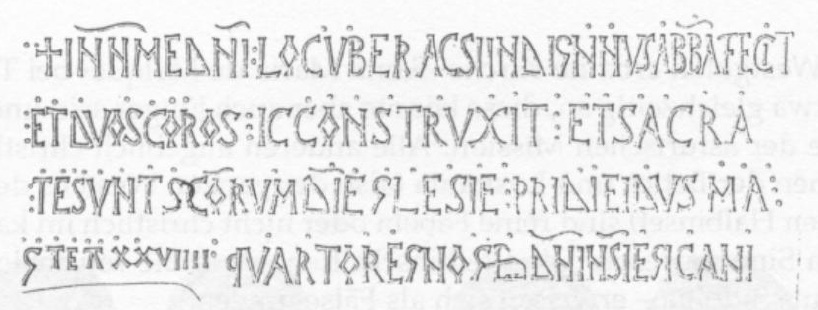 :+INNMEDNI:LOCVBERACSIINDIGNNVSABBAFECIT
ETDVOSCOROS:ICCONSTRVXIT:ETSACRA
TESVNTSCORVMDIEGLESIEPRIDIEIDVSMA:
QVARTOREGNO DNINSIEGICANI